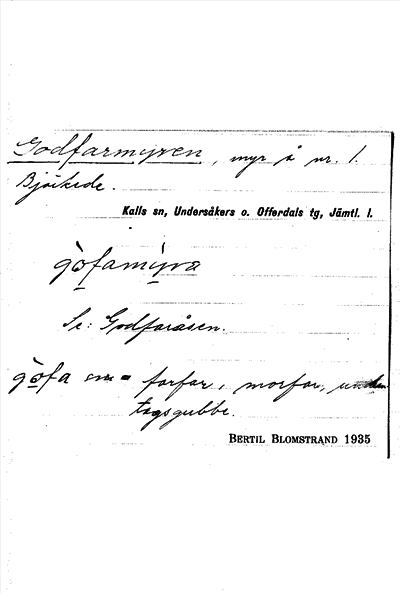 Godfarmyren, myr å nr. 1.
Björkede.
Kalls sn, Undersåkers o. Offerdals tg, Jämtl. l.
gòfamyra
Se: Godfaråsen.
gòfa sm = farfar, morfar, undan
tagsgubbe.
BERTIL BLOMSTRAND 1935